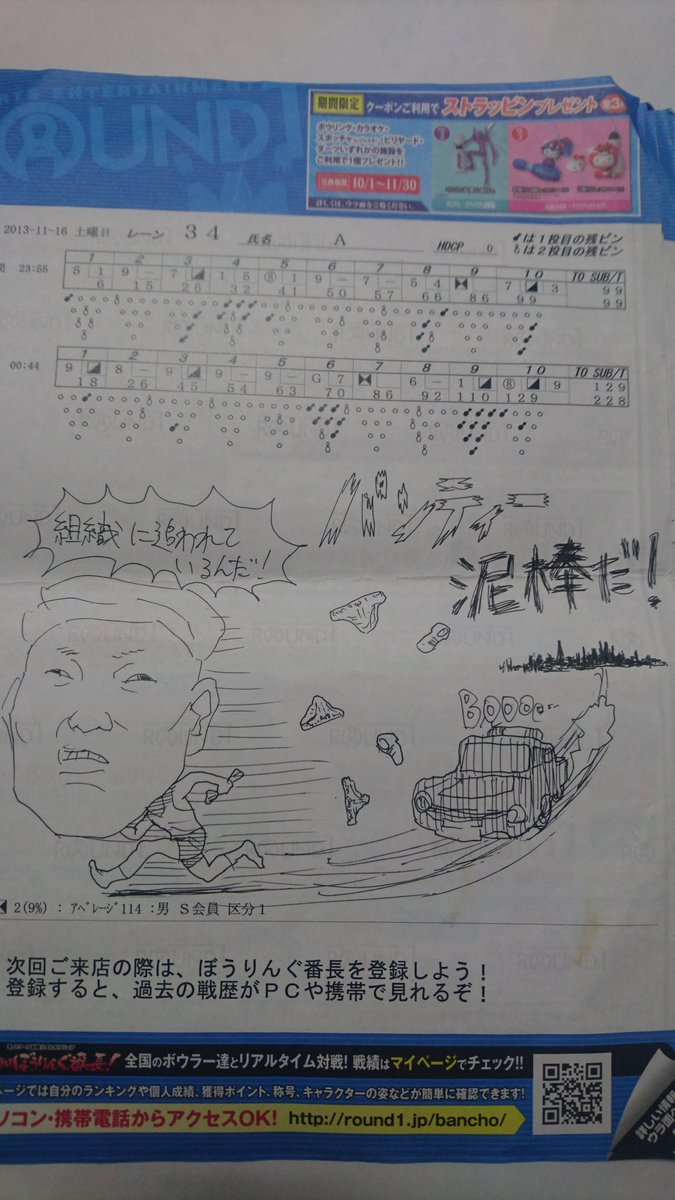 UND1
期間限定 クーポンご利用で ストラッピンプレゼント
ボウリング・カラオケ・
スポッチャ ビリヤード・
ダーツいずれかの施設を
ご利用で1個プレゼント!!
10/1~11/30
2013-11-16 土曜日 レーン 34 氏名 A HDCP 0 は1投目の残ピン
は2投目の残ピン
23:55 1 2 3 4 5 6 7 8 9 10 TO SUB/T
5 1 9 － 7 1 5 ⑧ 1 9 － 7 － 5 4 7 3 99
6 15 26 32 41 50 57 66 86 99 99
00:44 1 2 3 4 5 6 7 8 9 10 TO SUB/T
9 8 － 9 9 － 9 － G 7 6 － 1 ⑧ 9 129
18 26 45 54 63 70 86 92 110 129 228
組織に追われて
いるんだ!
パンティー
泥棒だ!
BOOO
2(9%) : ｱﾍﾞﾚｰｼﾞ114 :男 S会員 区分1
次回ご来店の際は、ぼうりんぐ番長を登録しよう！
登録すると、過去の戦歴がＰＣや携帯で見れるぞ！
ぼうりんぐ番長! 全国のボウラー達とリアルタイム対戦! 戦績はマイページでチェック!!
ページでは自分のランキングや個人成績、獲得ポイント、称号、キャラクターの姿などが簡単に確認できます!
ソコン・携帯電話からアクセスOK! http://round1.jp/bancho/
詳しい情報